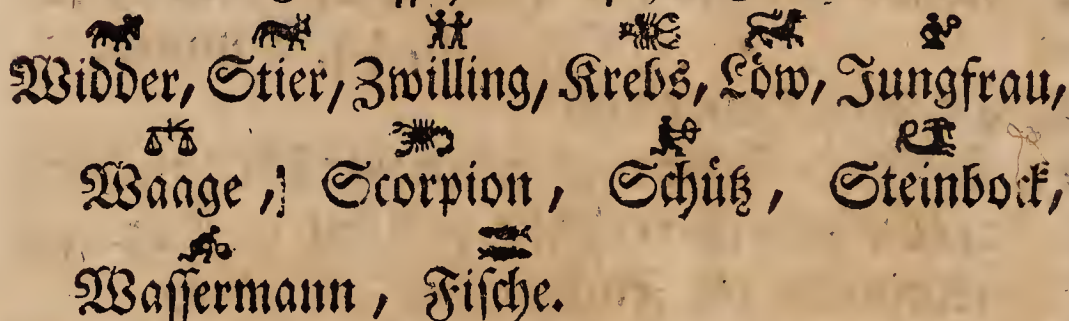 Widder, Stier, Zwilling, Krebs, Löw, Jungfrau,
Waage, Scorpion, Schütz, Steinbock,
Wassermann, Fische.